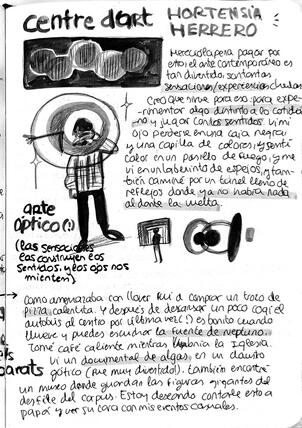 centre d'art HORTENSIA
HERRERO
Merece la pena pagar por
esto; el arte contemporáneo es
tan divertido, son tantas
sensaciones/experiencias chulas
Creo que sirve para eso: para expe-
rimentar algo distinto a lo cotidia-
no y jugar con los sentidos. Vi mi
ojo perderse en una caja negra
y una capilla de colores, y sentí
calor en un pasillo de fuego, y me
vi en un laberinto de espejos, y tam-
bién caminé por un túnel lleno de
reflejos donde ya no había nada
al darte la vuelta.
arte
óptico (!)
(las sensaciones
las construyen los
sentidos, y los ojos nos
mienten)
→ Como amenazaba con llover fui a comprar un trozo de
pizza calentita. Y después de descansar un poco cogí el
autobús al centro por última vez (!) es bonito cuando
llueve y puedes escuchar la fuente de neptuno.
Tomé café caliente mientras la iglesia.
Vi un documental de algas en un claustro
gótico (fue muy divertido). También encontré
un museo donde guardan las figuras gigantes del
desfile del corpus. Estoy deseando contarle esto a
papá y ver su cara con mis eventos casuales.